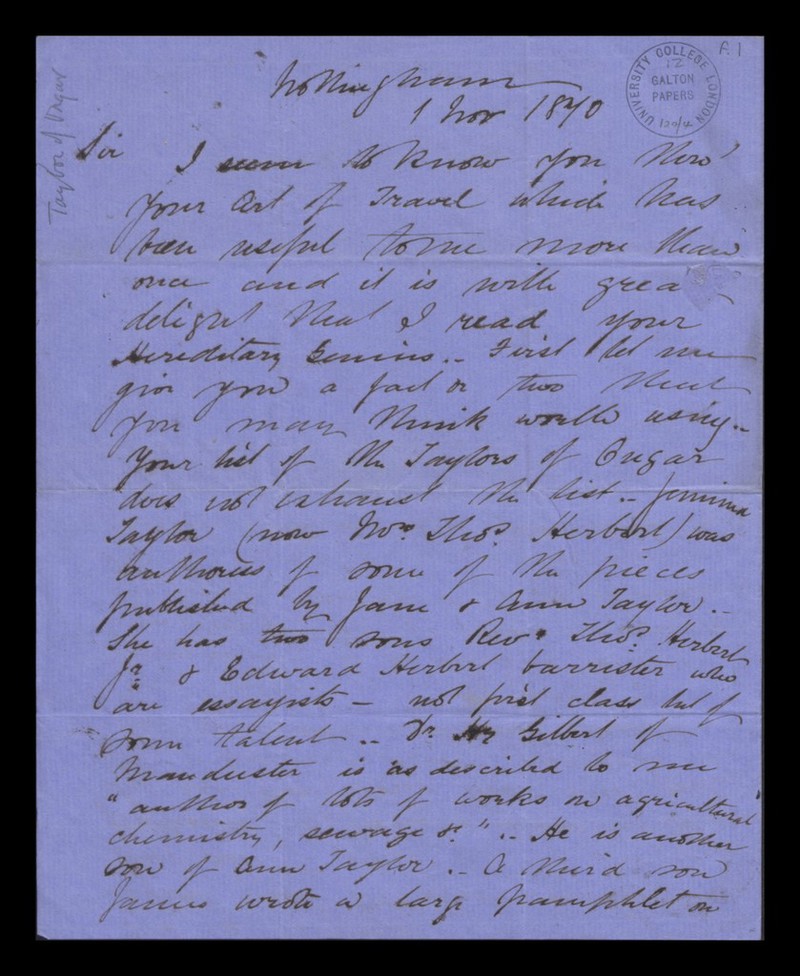 UNIVERSITY COLLEGE LONDON
12
GALTON
PAPERS
120/2
A1
Taylor of Ongar
Nottingham
1 Nov 1870
Sir I seem to know you thro'
your Art of Travel which has
been useful to me more than
once and it is with grea
delight that I read your
Hereditary Genius.. First let me
give you a fact or two that
you may think worth using..
Your list of the Taylors of Ongar
does not exhaust the list.. Jemima
Taylor (now Mrs. Thos. Herbert) was
authoress of some of the pieces
published by Jane & Ann Taylor..
She has two sons Revd. Thos. Herbert
Jr. & Edward Herbert barrister who
are essayists – not first class but of
some talent.. Dr. Hy Gilbert of
Manchester is as described to me
"author of lots of works on agricultural
chemistry, sewage &c" .. He is another
son of Ann Taylor.. A third son
James wrote a large pamphlet on